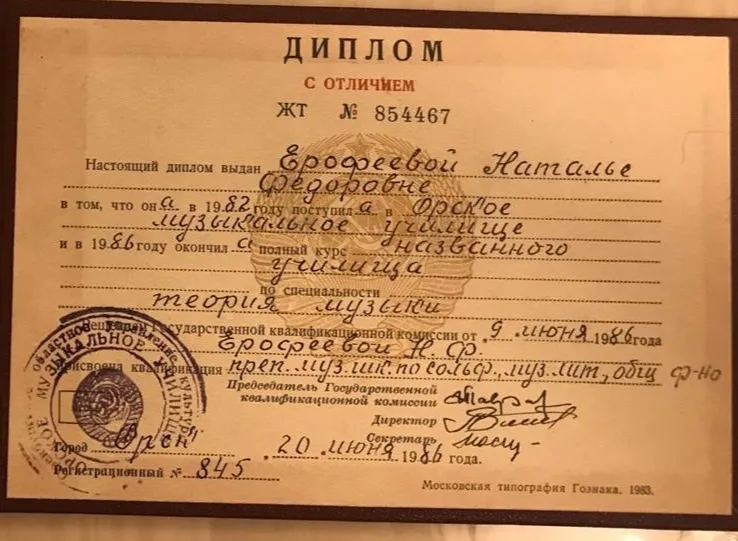 ДИПЛОМ
С ОТЛИЧИЕМ
ЖТ № 854467
Настоящий диплом выдан Ерофеевой Наталье
Федоровне
в том, что она в 1982 году поступила в Орское
музыкальное училище
и в 1986 году окончила полный курс названного
училища
по специальности
теория музыки
Решением Государственной квалификационной комиссии от 9 июня 1986 года
Ерофеевой Н. Ф.
присвоена квалификация преп. муз. шк. по сольф., муз. лит., общ ф-но
Председатель Государственной
квалификационной комиссии
Директор
Секретарь
Город Орск 20 июня 1986 года.
Регистрационный № 845
Московская типография Гознака. 1983.
областное управление культуры
ОРСКОЕ МУЗЫКАЛЬНОЕ УЧИЛИЩЕ